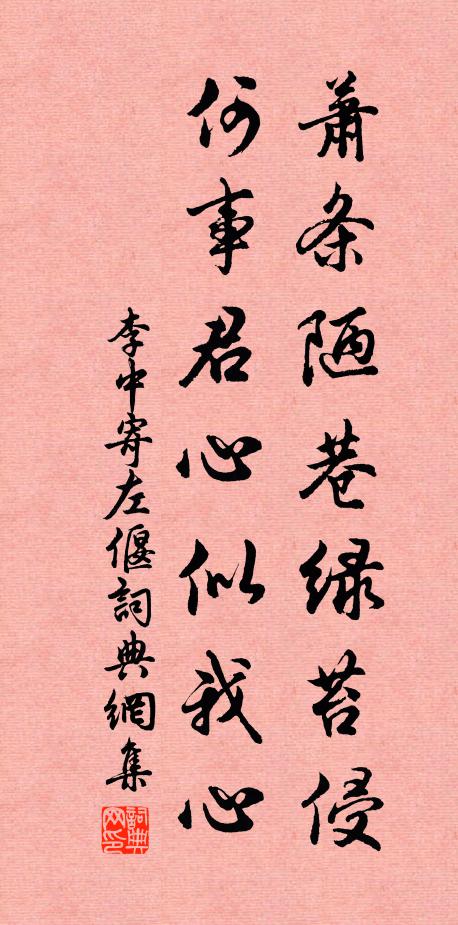 蕭条陋巷緑苔侵
何事君心似我心
李中寄左偃詞典網集
詞典
网印